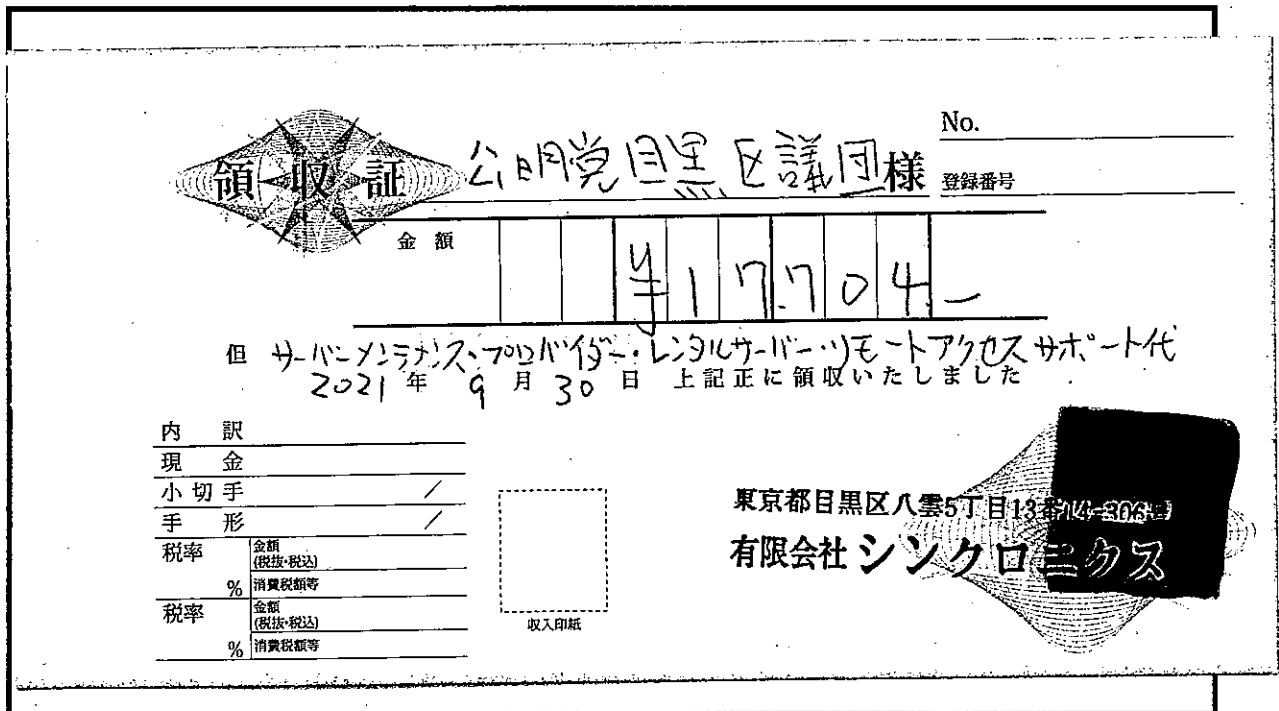 領収証
公明党目黒区議団様
No.
登録番号
金額 ¥17,704.-
但 サーバーメンテナンス・プロバイダー・レンタルサーバー・リモートアクセスサポート代
2021年9月30日 上記正に領収いたしました
内訳
現金
小切手 /
手形 /
税率 金額(税抜・税込)
% 消費税額等
税率 金額(税抜・税込)
% 消費税額等
収入印紙
東京都目黒区八雲5丁目13番14-306号
有限会社シンクロニクス